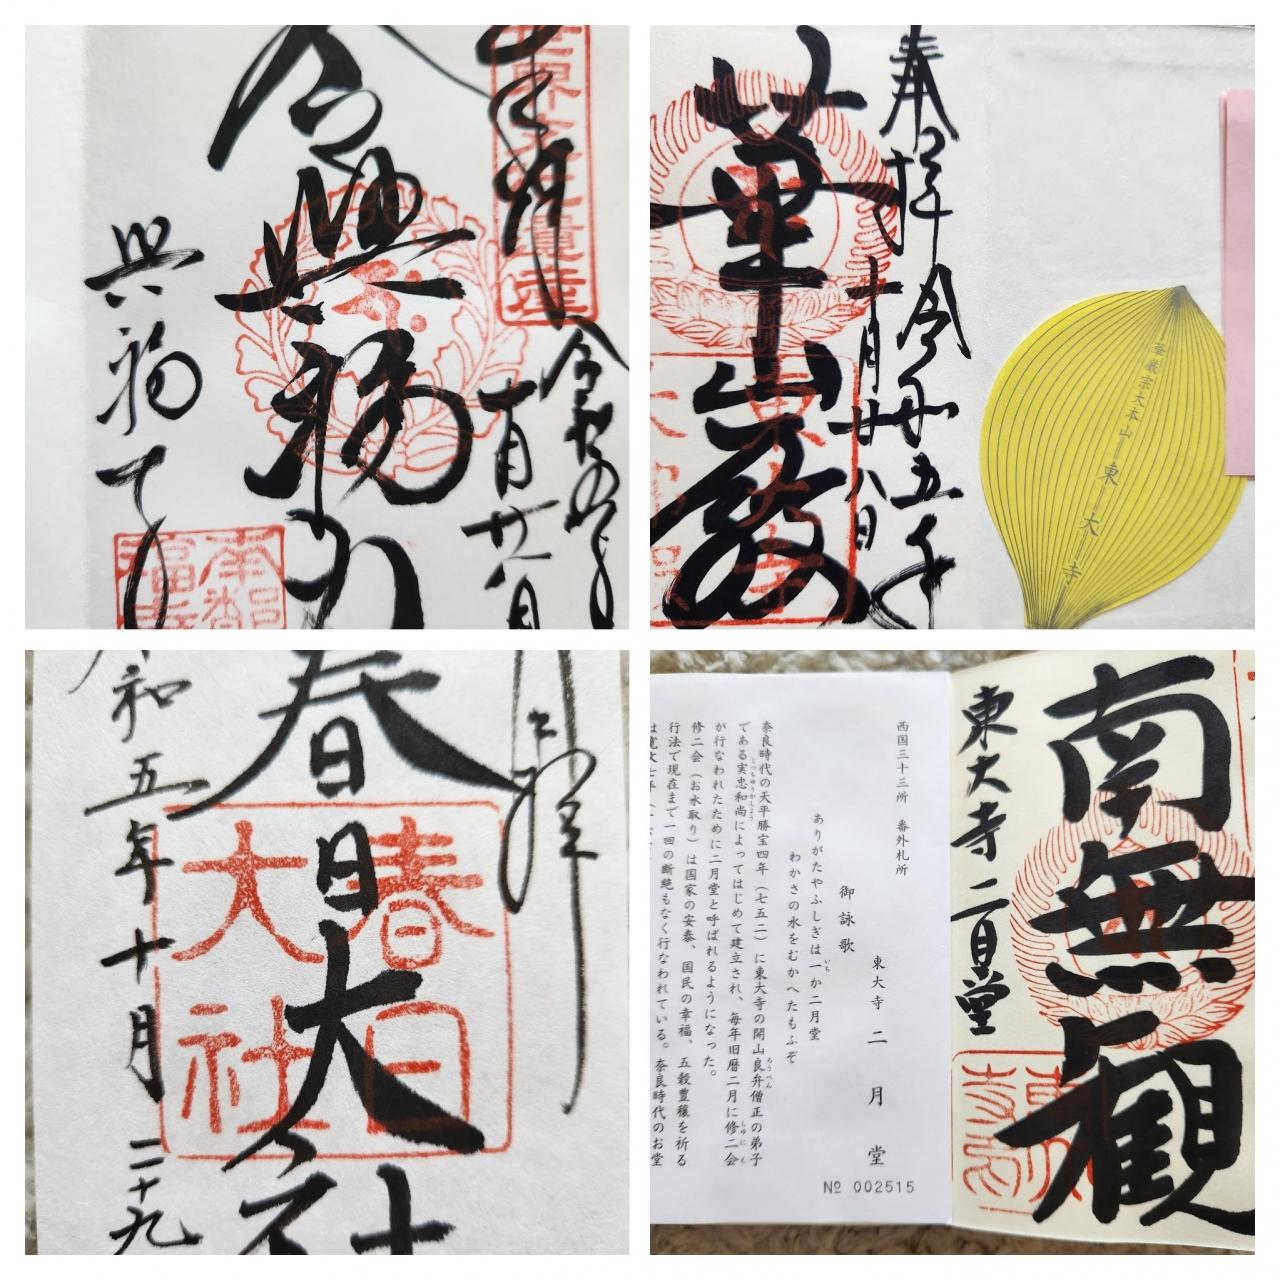 世界文化遺産
奉拝
令和五年
十月廿八日
令興福力
興福寺
南都
華厳宗大本山 東大寺
奉拝 令和五年
十月廿八日
華厳
春日大社
春日
大社
令和五年十月二十九
南無観
東大寺二月堂
西国三十三所 番外札所
東大寺 二月堂
御詠歌
ありがたやふしぎは一か二月堂
わかさの水をむかへたもふぞ
奈良時代の天平勝宝四年（七五二）に東大寺の開山良弁僧正の弟子
である実忠和尚によってはじめて建立され、毎年旧暦二月に修二会
が行なわれたために二月堂と呼ばれるようになった。
修二会（お水取り）は国家の安泰、国民の幸福、五穀豊穣を祈る
行法で現在まで一回の断絶もなく行なわれている。奈良時代のお堂
№ 002515